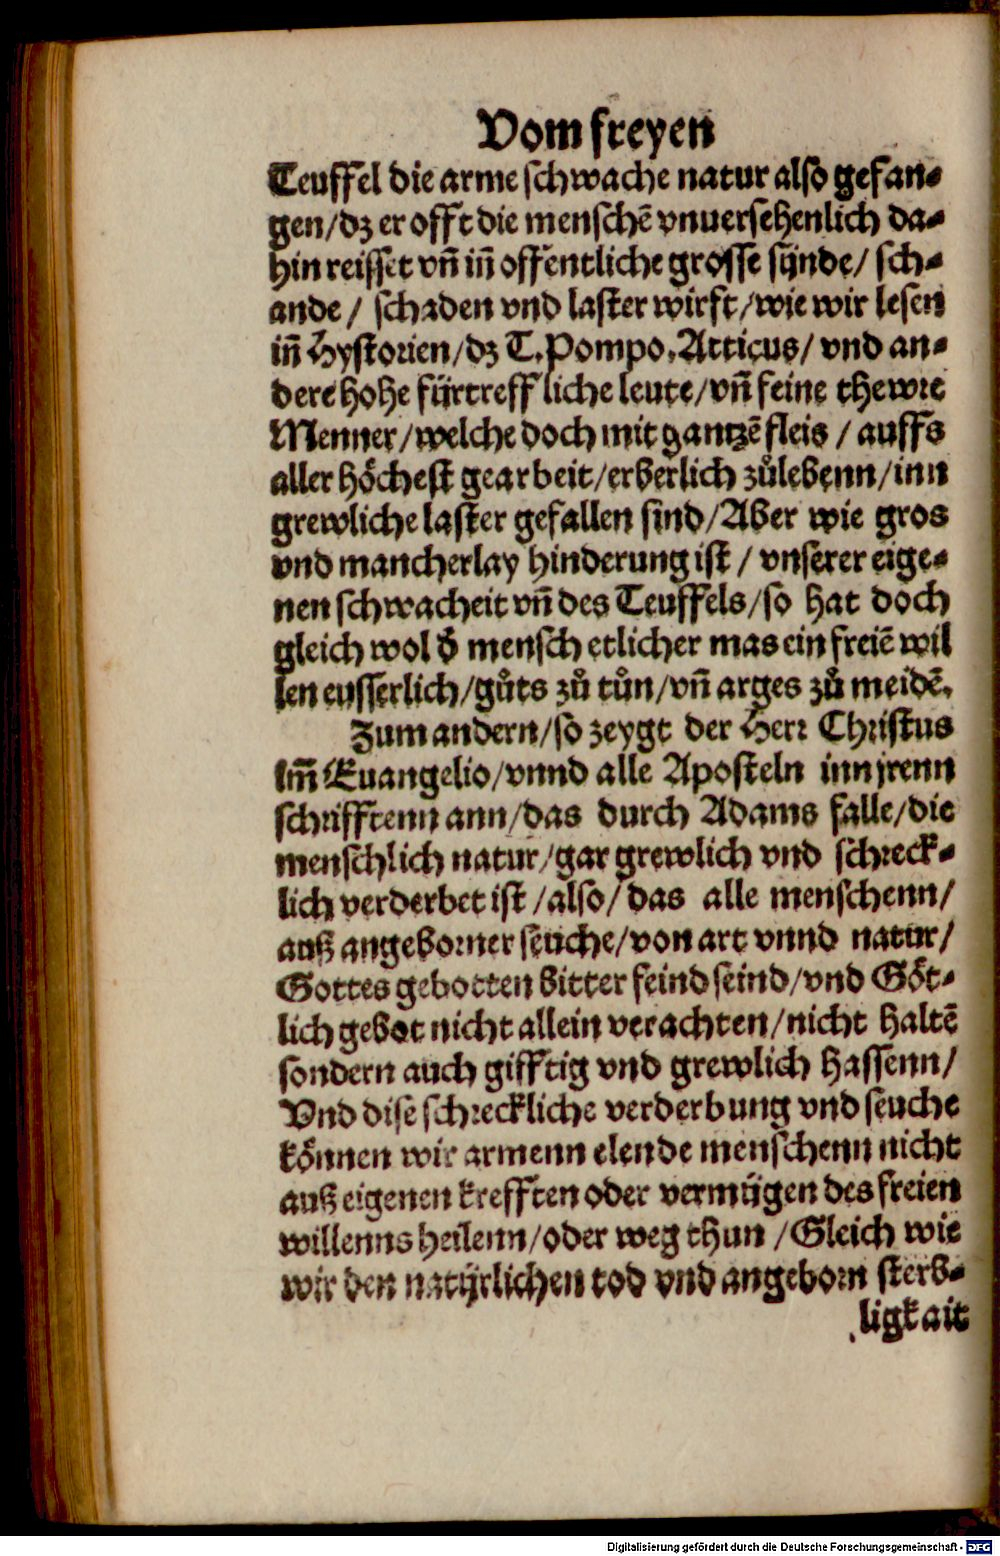 Vom freyen
Teuffel die arme schwache natur also gefan⸗
gen/dz er offt die menschē vnuersehenlich da⸗
hin reisset vñ iñ offentliche grosse sünde/ sch⸗
ande/ schaden vnd laster wirft/wie wir lesen
iñ Hystorien/dz T.Pompo.Atticus/ vnd an⸗
dere hohe fürtreffliche leute/vñ feine thewre
Menner/welche doch mit gantzē fleis / auffs
aller höchest gearbeit/erberlich zůlebenn/inn
grewliche laster gefallen sind/Aber wie gros
vnd mancherlay hinderung ist / vnserer eige⸗
nen schwacheit vñ des Teuffels/so hat doch
gleich wol d̄ mensch etlicher mas ein freiē wil
len eusserlich/gůts zů tůn/vñ arges zů meidē.
Zum andern/so zeygt der Herr Christus
Im̄ Euangelio/vnnd alle Aposteln inn jrenn
schrifftenn ann/das durch Adams falle/die
menschlich natur/gar grewlich vnd schreck⸗
lich verderbet ist /also/ das alle menschenn/
auß angeborner seuche/von art vnnd natur/
Gottes gebotten bitter feind seind/vnd Göt⸗
lich gebot nicht allein verachten/nicht haltē
sondern auch gifftig vnd grewlich hassenn/
Vnd dise schreckliche verderbung vnd seuche
können wir armenn elende menschenn nicht
auß eigenen krefften oder vermügen des freien
willenns heilenn/oder weg thun /Gleich wie
wir den natürlichen tod vnd angeborn sterb⸗
ligkait
Digitalisierung gefördert durch die Deutsche Forschungsgemeinschaft - DFG